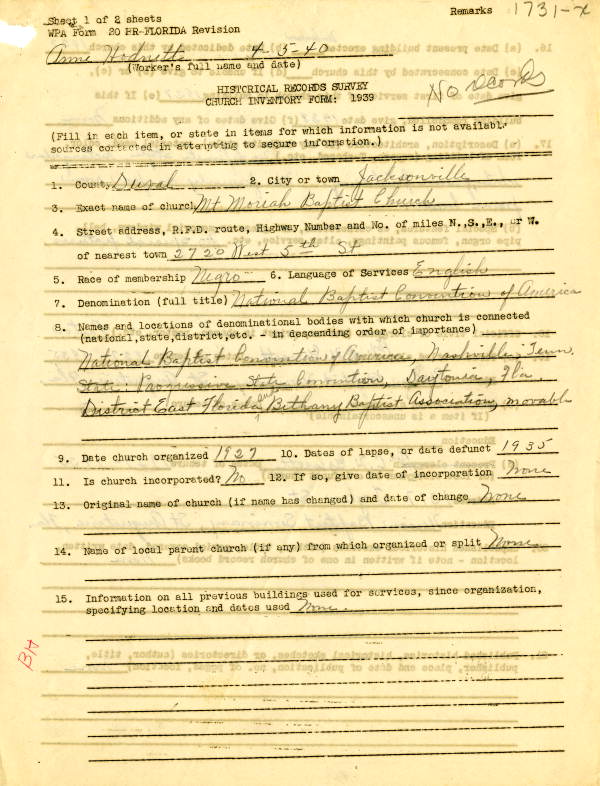 Sheet 1 of 2 sheets
Remarks 1731-x
WPA Form 20 HR-FLORIDA Revision
Anne Hodnette 4-5-40
(Worker's full name and date)
HISTORICAL RECORDS SURVEY
CHURCH INVENTORY FORM: 1939
No records
(Fill in each item, or state in items for which information is not available
sources contacted in attempting to secure information.)
1. County Duval 2. City or town Jacksonville
3. Exact name of church Mt Moriah Baptist Church
4. Street address, R.F.D. route, Highway Number and No. of miles N.,S.,E., or W.
of nearest town 2720 West 5th St
5. Race of membership Negro 6. Language of Services English
7. Denomination (full title) National Baptist Convention of America
8. Names and locations of denominational bodies with which church is connected
(national,state,district,etc. - in descending order of importance)
National Baptist Convention of America, Nashville, Tenn.
State: Progressive State Convention, Daytonia, Fla.
District East Florida Bethany Baptist Association, movable
9. Date church organized 1927 10. Dates of lapse, or date defunct 1935
11. Is church incorporated? No 12. If so, give date of incorporation None
13. Original name of church (if name has changed) and date of change None
14. Name of local parent church (if any) from which organized or split None
15. Information on all previous buildings used for services, since organization,
specifying location and dates used None.
BH